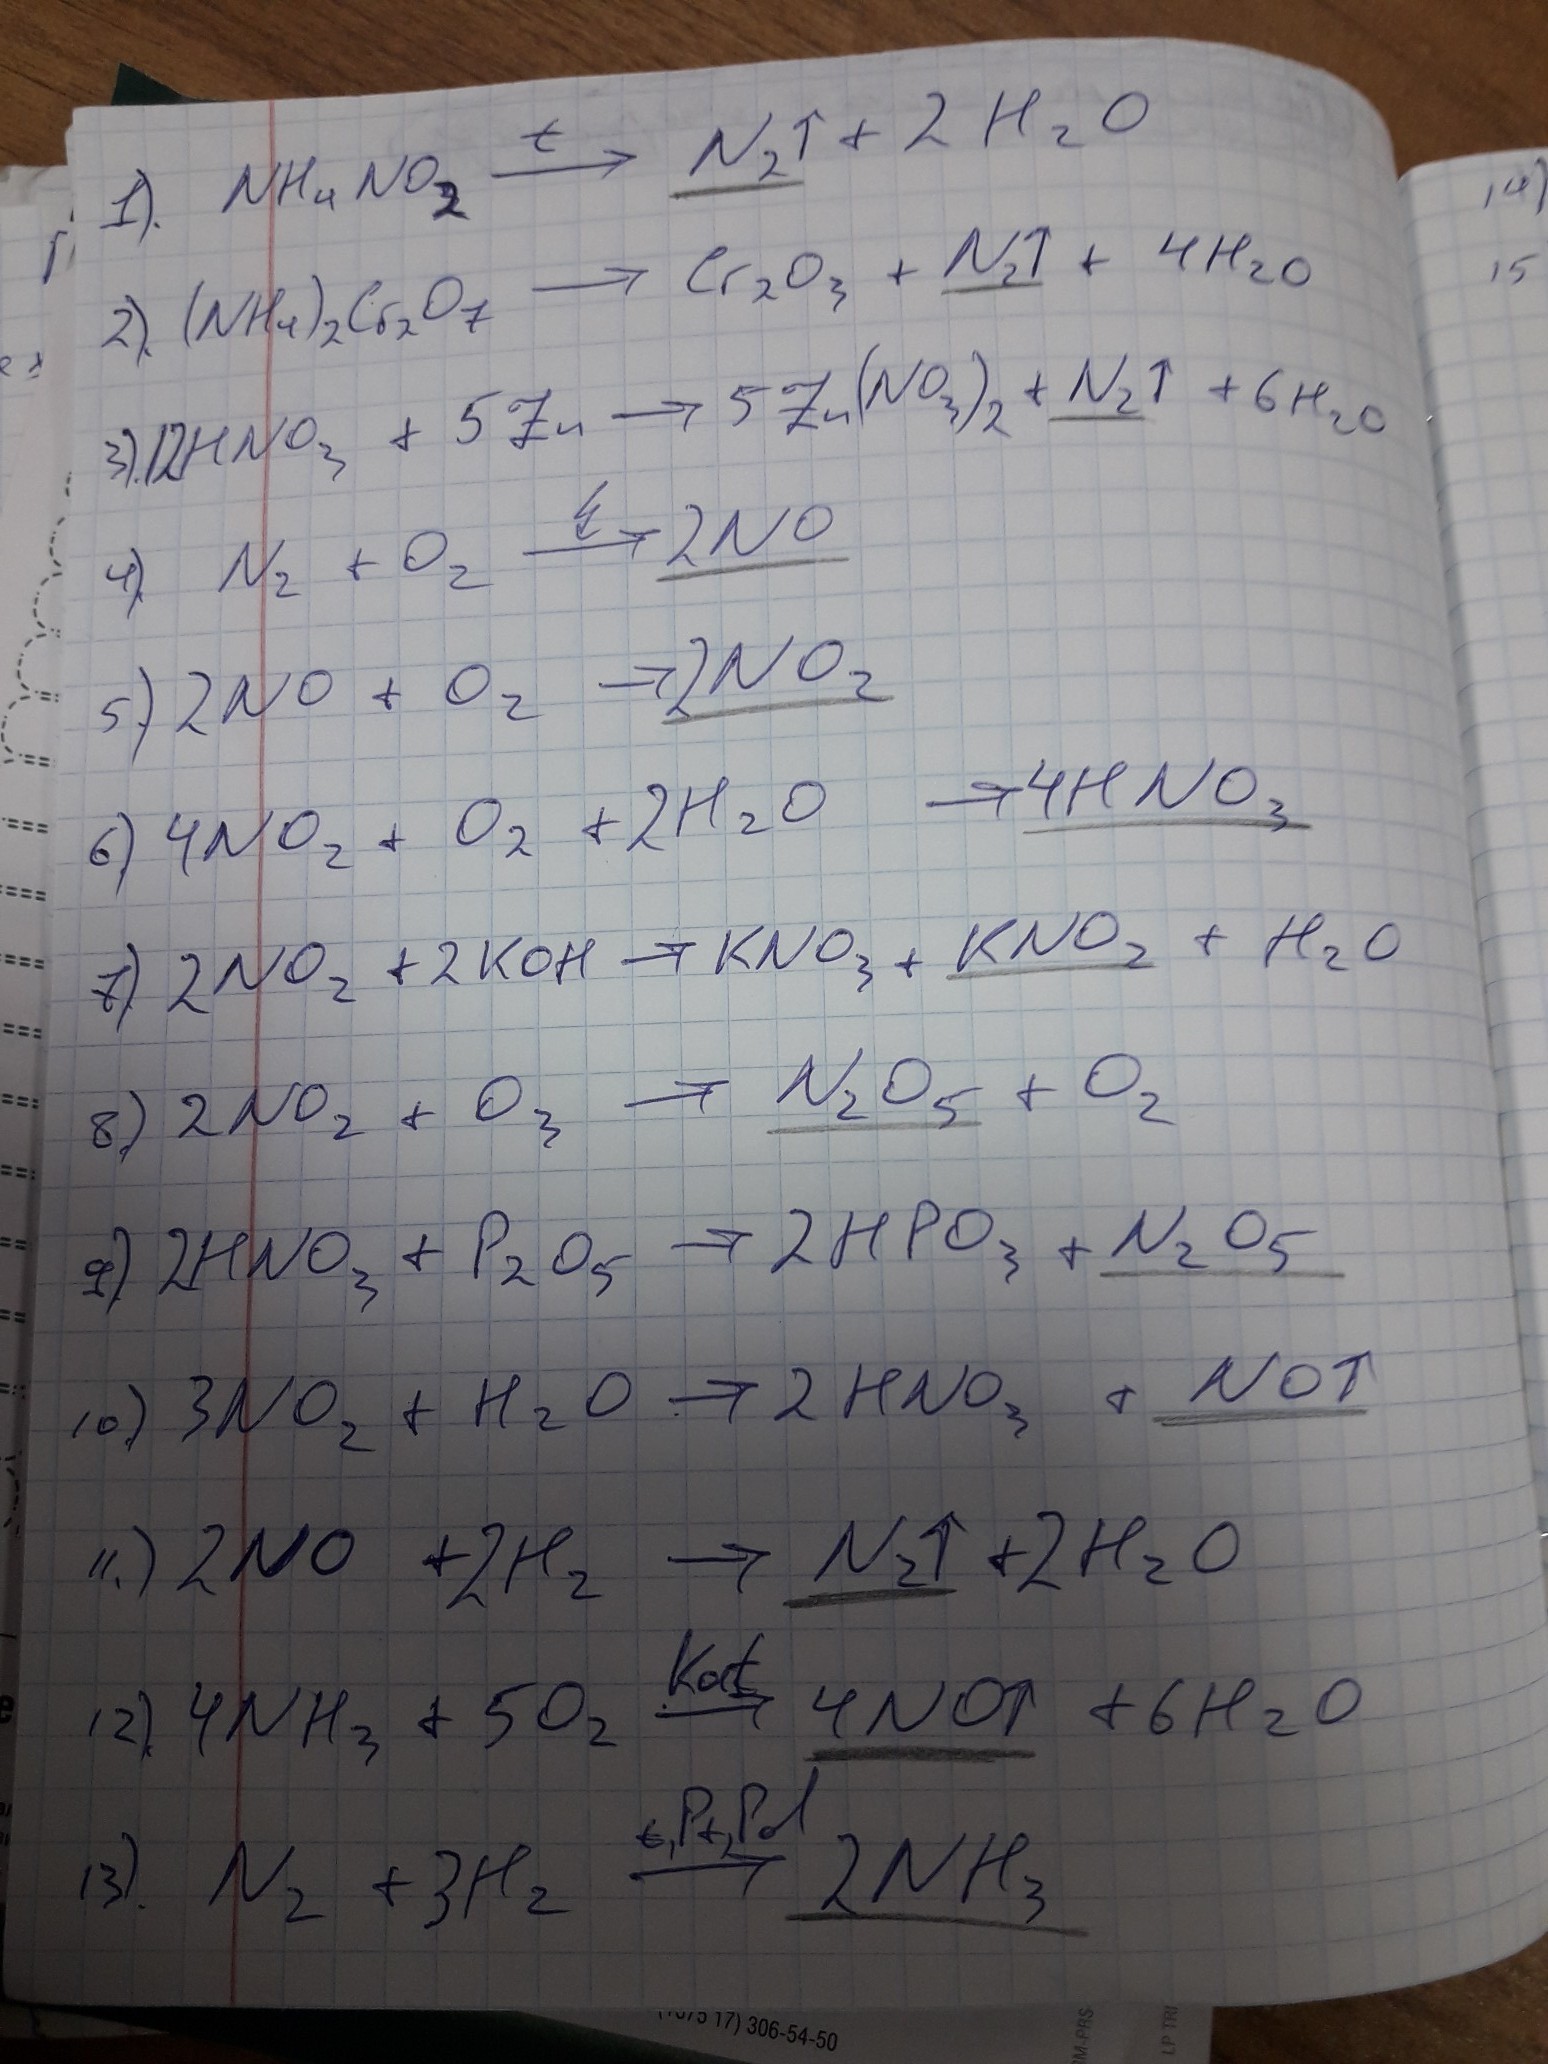 1). NH₄NO₂ —t→ N₂↑ + 2H₂O
2). (NH₄)₂Cr₂O₇ → Cr₂O₃ + N₂↑ + 4H₂O
3). 12HNO₃ + 5Zn → 5Zn(NO₃)₂ + N₂↑ + 6H₂O
4). N₂ + O₂ → 2NO
5) 2NO + O₂ → 2NO₂
6) 4NO₂ + O₂ + 2H₂O → 4HNO₃
7) 2NO₂ + 2KOH → KNO₃ + KNO₂ + H₂O
8.) 2NO₂ + O₃ → N₂O₅ + O₂
9) 2HNO₃ + P₂O₅ → 2HPO₃ + N₂O₅
10.) 3NO₂ + H₂O → 2HNO₃ + NO↑
11.) 2NO + 2H₂ → N₂↑ + 2H₂O
12). 4NH₃ + 5O₂ —Kat→ 4NO↑ + 6H₂O
13). N₂ + 3H₂ —t, Pt, Pd→ 2NH₃
14)
15
17) 306-54-50
LP TRI